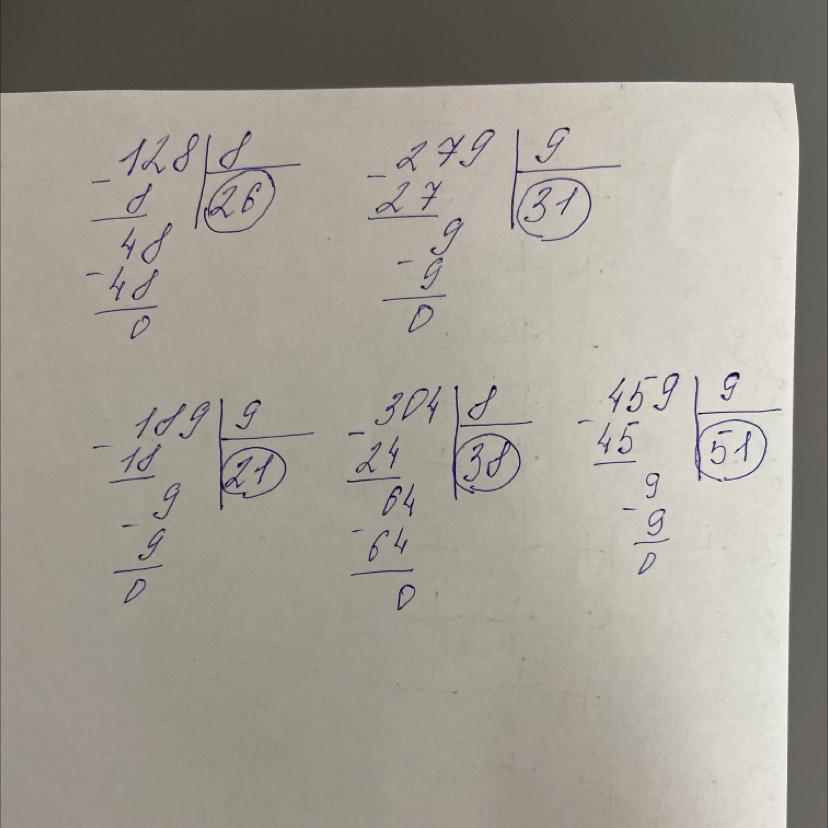 -128 | 8
8 | 26
48
-48
0
-279 | 9
27 | 31
9
-9
0
-189 | 9
18 | 21
9
-9
0
-304 | 8
24 | 38
64
-64
0
-459 | 9
45 | 51
9
-9
0